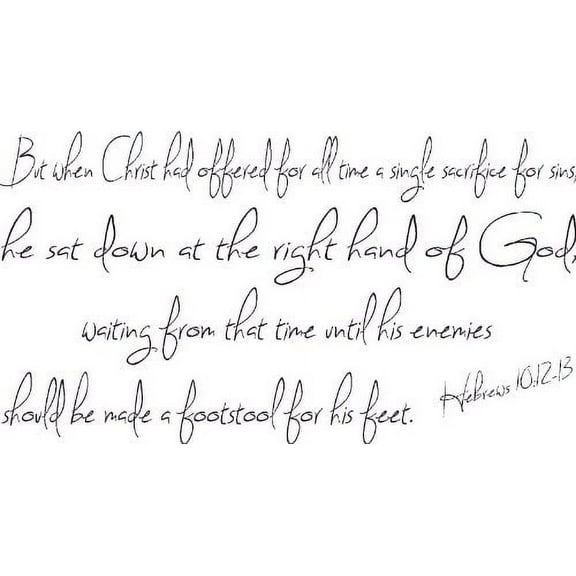 But when Christ had offered for all time a single sacrifice for sins,
he sat down at the right hand of God,
waiting from that time until his enemies
should be made a footstool for his feet.
Hebrews 10:12-13